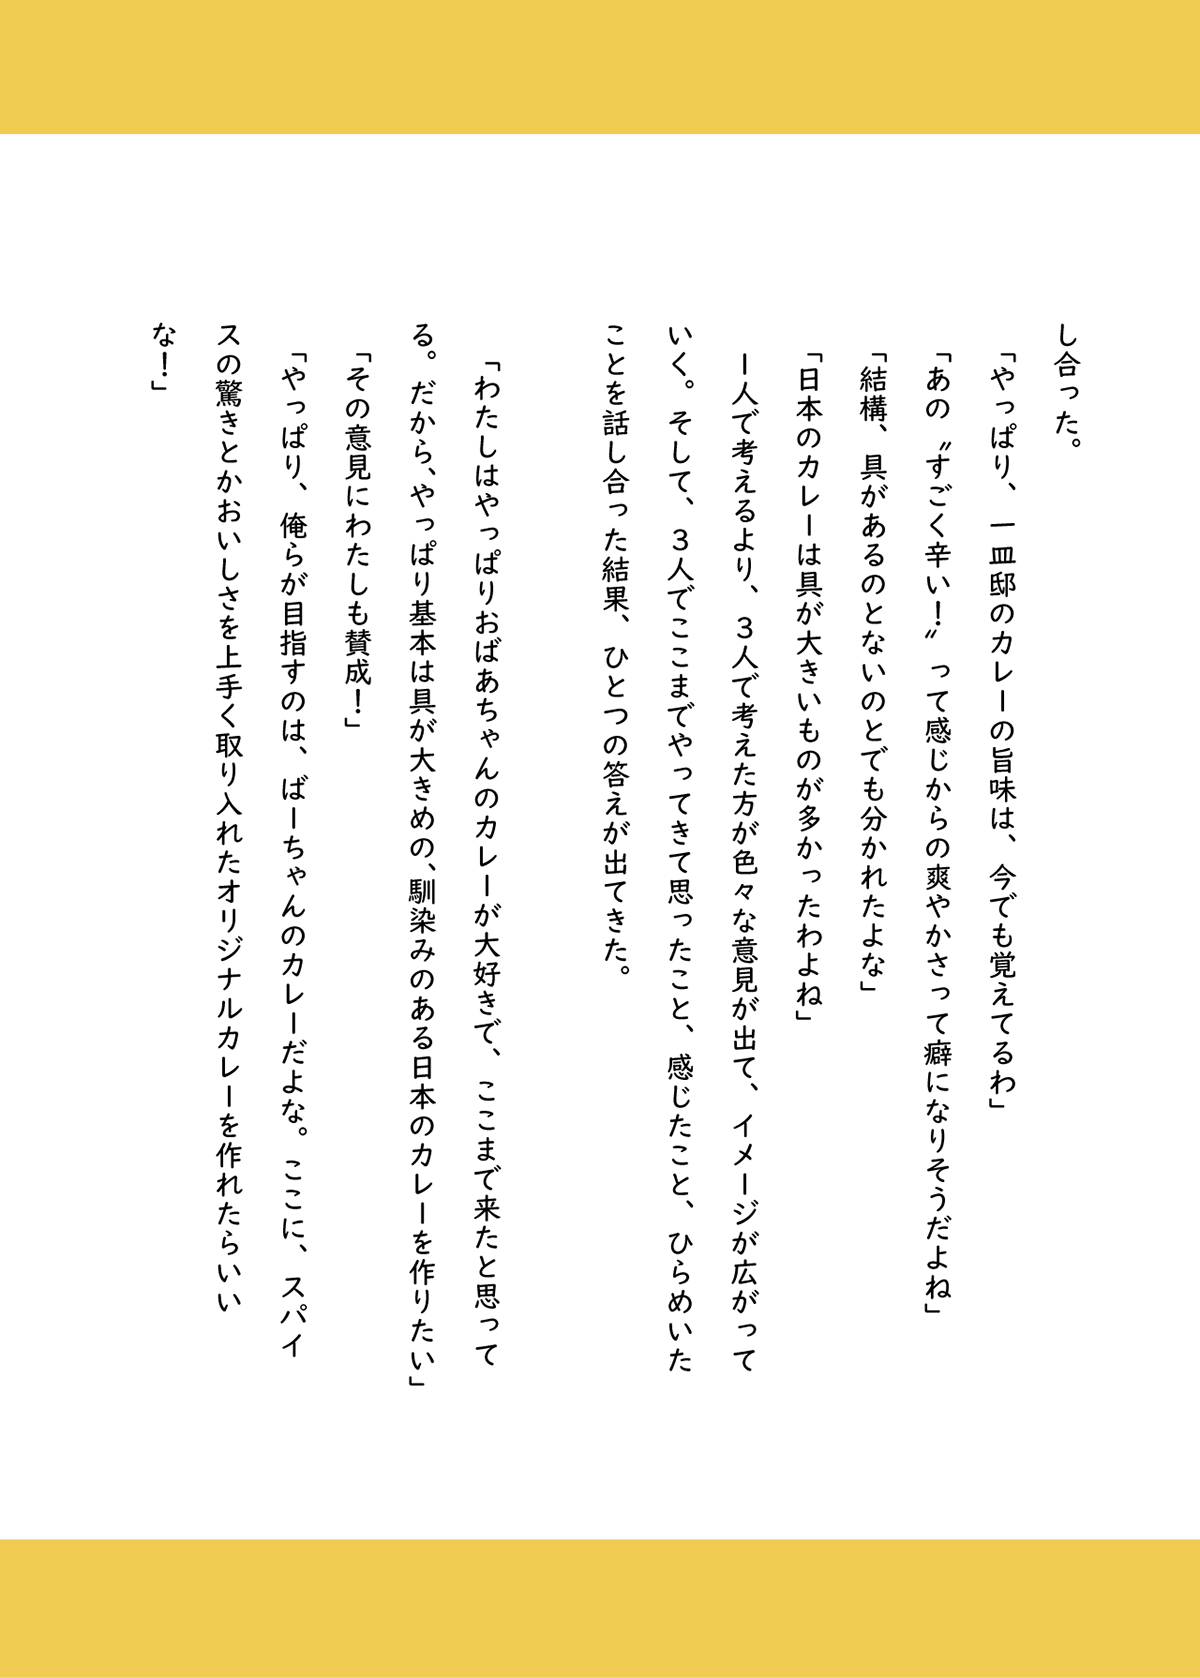 し合った。
「やっぱり、一皿邸のカレーの旨味は、今でも覚えてるわ」
「あの〝すごく辛い！〟って感じからの爽やかさって癖になりそうだよね」
「結構、具があるのとないのとでも分かれたよな」
「日本のカレーは具が大きいものが多かったわよね」
１人で考えるより、３人で考えた方が色々な意見が出て、イメージが広がって
いく。そして、３人でここまでやってきて思ったこと、感じたこと、ひらめいた
ことを話し合った結果、ひとつの答えが出てきた。
「わたしはやっぱりおばあちゃんのカレーが大好きで、ここまで来たと思って
る。だから、やっぱり基本は具が大きめの、馴染みのある日本のカレーを作りたい」
「その意見にわたしも賛成！」
「やっぱり、俺らが目指すのは、ばーちゃんのカレーだよな。ここに、スパイ
スの驚きとかおいしさを上手く取り入れたオリジナルカレーを作れたらいい
な！」